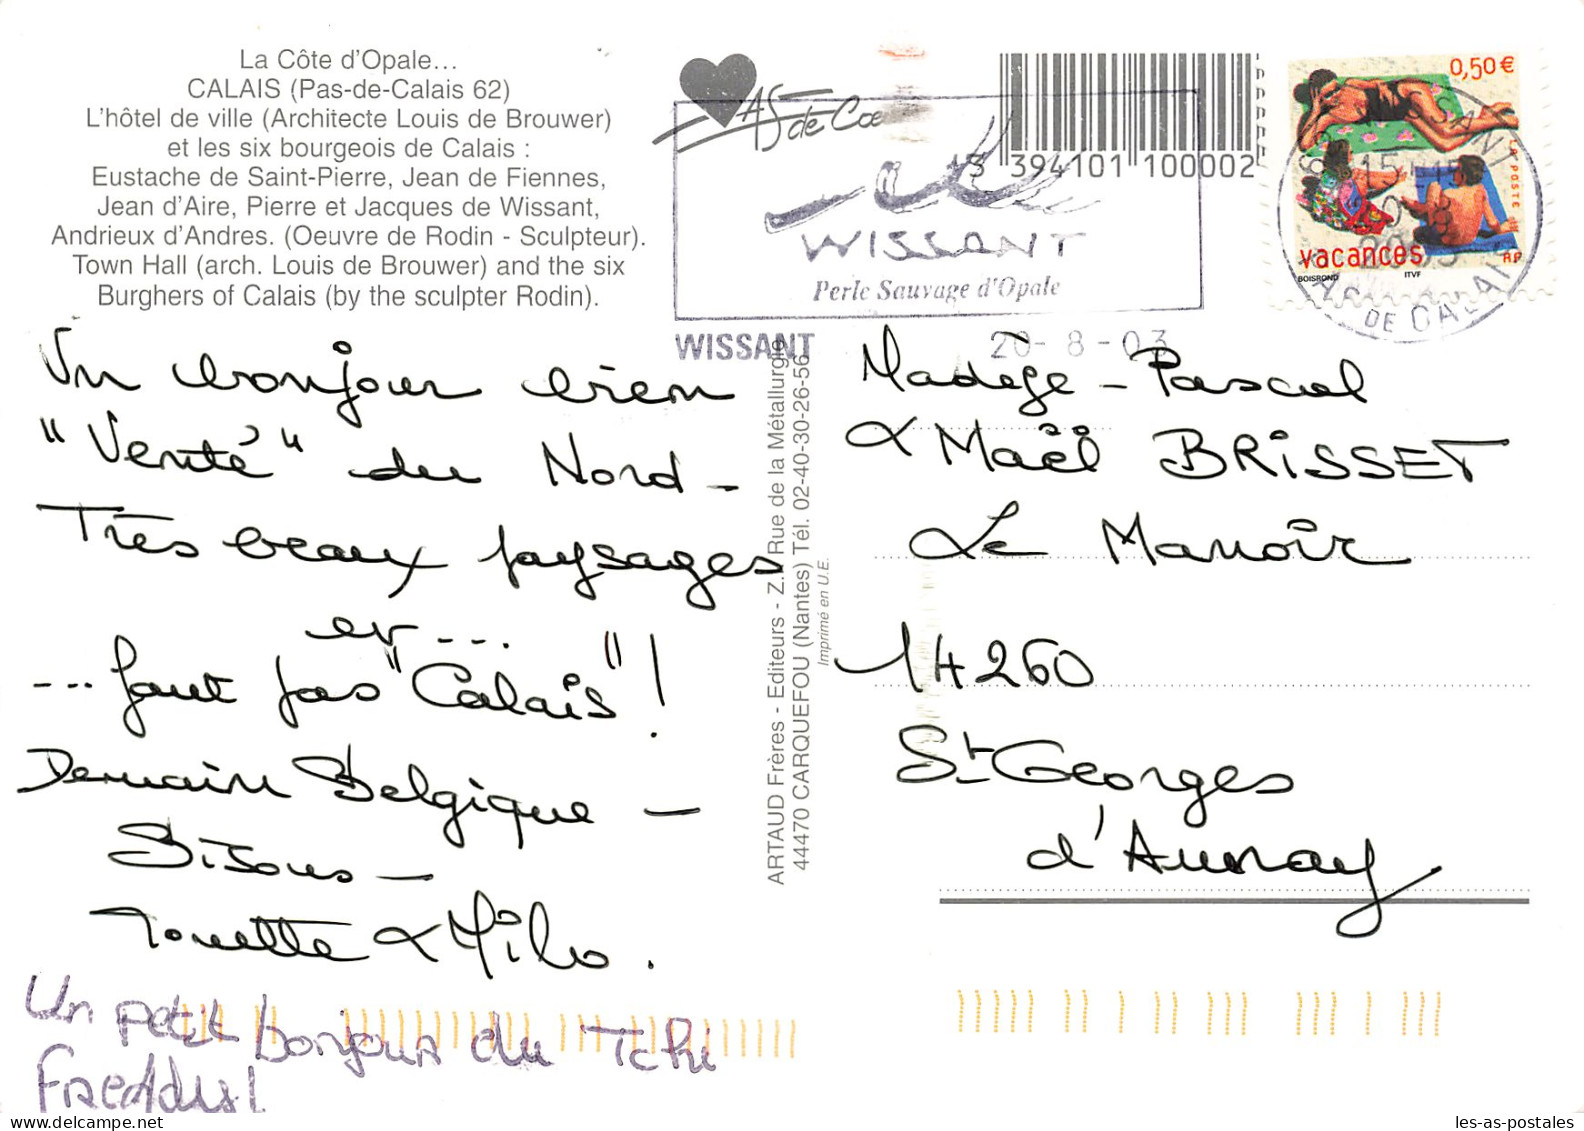 La Côte d'Opale...
CALAIS (Pas-de-Calais 62)
L'hôtel de ville (Architecte Louis de Brouwer)
et les six bourgeois de Calais :
Eustache de Saint-Pierre, Jean de Fiennes,
Jean d'Aire, Pierre et Jacques de Wissant,
Andrieux d'Andres. (Oeuvre de Rodin - Sculpteur).
Town Hall (arch. Louis de Brouwer) and the six
Burghers of Calais (by the sculpter Rodin).
AS de Cœ
3 394101 100002
WISSANT
Perle Sauvage d'Opale
WISSANT
20-8-03
0,50€
LA POSTE
vacances
RF
BOISROND
ITVF
DE CALAIS
Un bonjour bien
"Venté" du Nord -
Très beaux paysages
et...
... faut pas "Calais" !
Demain Belgique -
Bisous -
Nouette & Milo.
Un petit bonjour du Tchi
Freddy!
ARTAUD Frères - Editeurs - Z.I. Rue de la Métallurgie
44470 CARQUEFOU (Nantes) Tél. 02-40-30-26-56
Imprimé en U.E.
Nadège - Pascal
& Maël BRISSET
Le Manoir
14260
St Georges
d'Aunay
les-as-postales
delcampe.net